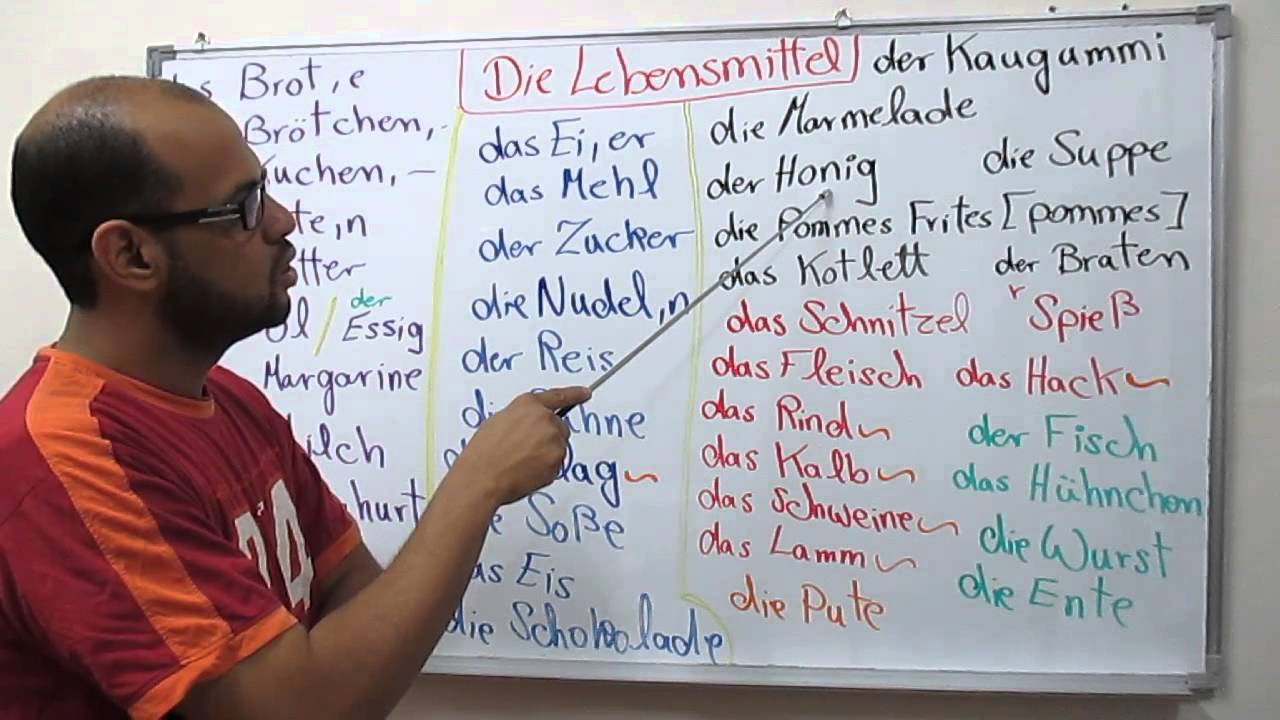 Die Lebensmittel
s Brot, e
Brötchen, -
uchen, –
te, n
tter
Öl / der Essig
Margarine
ilch
hurt
das Ei, er
das Mehl
der Zucker
die Nudel, n
der Reis
di hne
lag~
e Soße
as Eis
die Schokolade
der Kaugummi
die Marmelade
der Honig
die Suppe
die Pommes Frites [pommes]
das Kotlett
der Braten
das Schnitzel
r Spieß
das Fleisch
das Hack~
das Rind~
der Fisch
das Kalb~
das Hühnchen
das Schweine~
die Wurst
das Lamm~
die Ente
die Pute